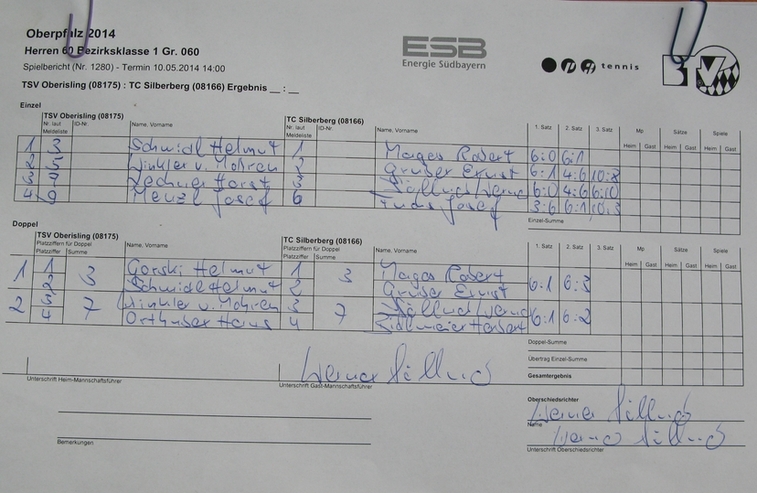 Oberpfalz 2014
Herren 60 Bezirksklasse 1 Gr. 060
Spielbericht (Nr. 1280) - Termin 10.05.2014 14:00
TSV Oberisling (08175) : TC Silberberg (08166) Ergebnis __ : __
ESB
Energie Südbayern
tennis
BTV
Einzel
TSV Oberisling (08175) TC Silberberg (08166)
Nr. laut Meldeliste ID-Nr. Name, Vorname Nr. laut Meldeliste ID-Nr. Name, Vorname 1. Satz 2. Satz 3. Satz Mp Sätze Spiele
Heim Gast Heim Gast Heim Gast
1 3 Schwidl Helmut 1 Mages Robert 6:0 6:1
2 5 Winkler v. Mohren 2 Gruber Ernst 6:1 4:6 10:8
3 Horst 3 6:0 4:6 6:10
4 9 Menzl Josef 6 Josef 3:6 6:1 10:3
Einzel-Summe
Doppel
TSV Oberisling (08175) TC Silberberg (08166)
Platzziffern für Doppel Platzziffern für Doppel
Platzziffer Summe Name, Vorname Platzziffer Summe Name, Vorname 1. Satz 2. Satz 3. Satz Mp Sätze Spiele
Heim Gast Heim Gast Heim Gast
1 1 3 Gorski Helmut 1 3 Mages Robert 6:1 6:3
2 Schwidl Helmut 2 Gruber Ernst
2 3 7 Winkler v. Mohren 3 7 6:1 6:2
4 Orthuber Hans 4 Zidlmeier Herbert
Doppel-Summe
Übertrag Einzel-Summe
Gesamtergebnis
Unterschrift Heim-Mannschaftsführer Unterschrift Gast-Mannschaftsführer
Oberschiedsrichter
Name
Bemerkungen
Unterschrift Oberschiedsrichter